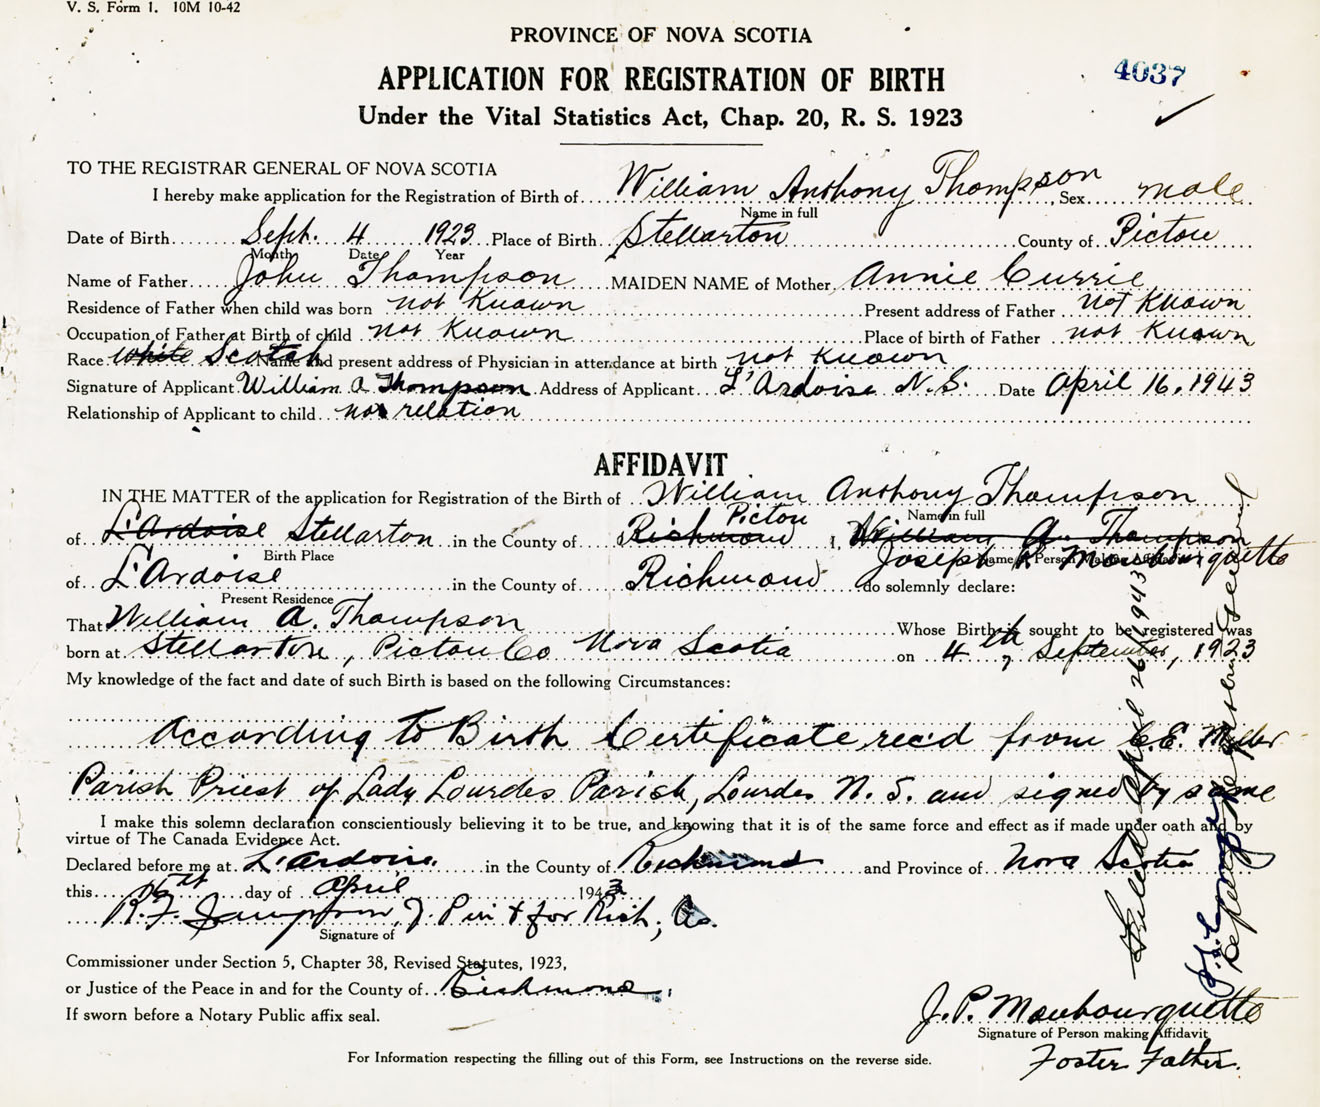 V. S. Form 1. 10M 10-42
PROVINCE OF NOVA SCOTIA
APPLICATION FOR REGISTRATION OF BIRTH
4037
Under the Vital Statistics Act, Chap. 20, R. S. 1923
TO THE REGISTRAR GENERAL OF NOVA SCOTIA
I hereby make application for the Registration of Birth of William Anthony Thompson, Sex male
Name in full
Date of Birth Sept. 4 1923 Place of Birth Stellarton County of Pictou
Month Date Year
Name of Father John Thompson MAIDEN NAME of Mother Annie Currie
Residence of Father when child was born not Known Present address of Father not Known
Occupation of Father at Birth of child not Known Place of birth of Father not Known
Race White Scotch Name and present address of Physician in attendance at birth not Known
Signature of Applicant William A Thompson Address of Applicant L'Ardoise N.S. Date April 16, 1943
Relationship of Applicant to child not relation
AFFIDAVIT
IN THE MATTER of the application for Registration of the Birth of William Anthony Thompson
Name in full
of L'Ardoise Stellarton in the County of Richmond Pictou I, William A. Thompson
Birth Place Joseph P. Mombourquette
Name of Person Making Affidavit
of L'Ardoise in the County of Richmond do solemnly declare:
Present Residence
That William A. Thompson Whose Birth is sought to be registered was
born at Stellarton, Pictou Co Nova Scotia on 4th September, 1923
My knowledge of the fact and date of such Birth is based on the following Circumstances:
According to Birth Certificate rec'd from C.E. Miller
Parish Priest of Lady Lourdes Parish, Lourdes N. S. and signed by same
I make this solemn declaration conscientiously believing it to be true, and knowing that it is of the same force and effect as if made under oath and by
virtue of The Canada Evidence Act.
Declared before me at L'Ardoise in the County of Richmond and Province of Nova Scotia
this 16th day of April 1943
R. F. Sampson, J. P. in & for Rich. Co.
Signature of
Commissioner under Section 5, Chapter 38, Revised Statutes, 1923,
or Justice of the Peace in and for the County of Richmond
If sworn before a Notary Public affix seal.
J. P. Mombourquette
Signature of Person making Affidavit
Foster Father.
For Information respecting the filling out of this Form, see Instructions on the reverse side.
Filed April 26 1943
Deputy Registrar General